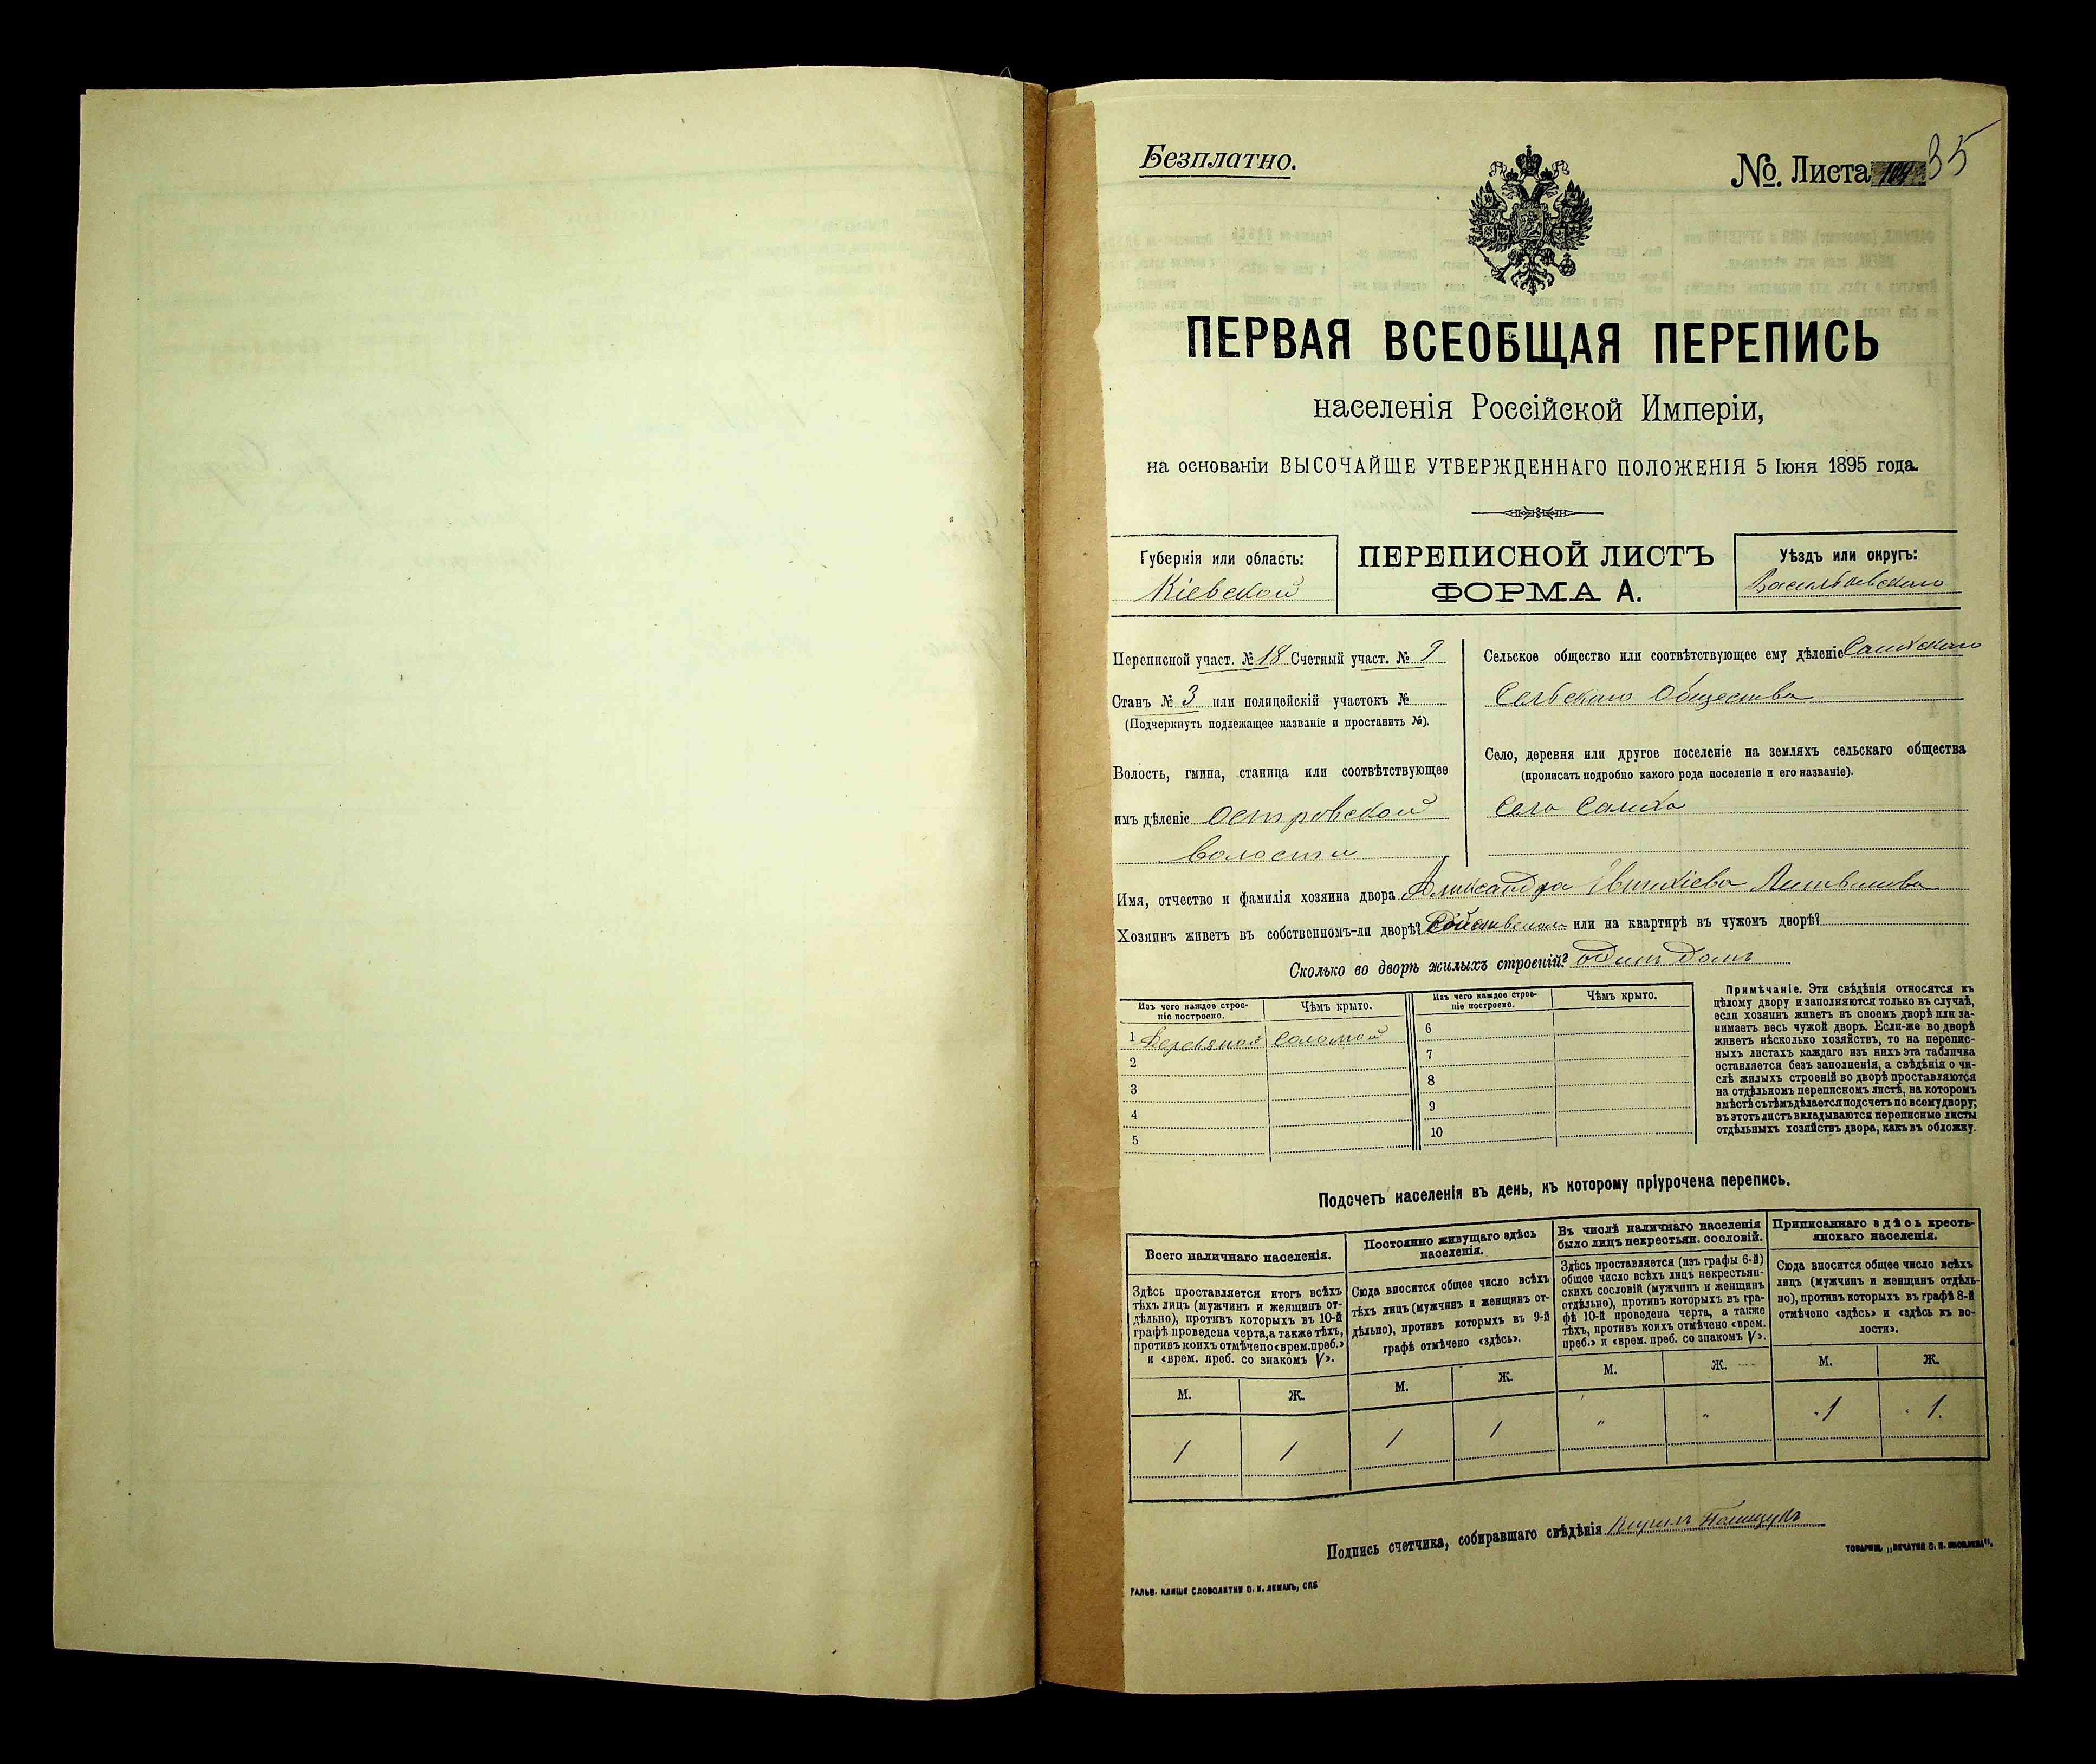 Безплатно.
№ Листа 35
ПЕРВАЯ ВСЕОБЩАЯ ПЕРЕПИСЬ
населенія Россійской Имперіи,
на основаніи ВЫСОЧАЙШЕ УТВЕРЖДЕННАГО ПОЛОЖЕНІЯ 5 Іюня 1895 года.
Губернія или область:
Кіевской
ПЕРЕПИСНОЙ ЛИСТЪ
ФОРМА А.
Уѣздъ или округъ:
Васильковскаго
Переписной участ. № 18 Счетный участ. № 9
Станъ № 3 или полицейскій участокъ №
(Подчеркнуть подлежащее названіе и проставить №).
Волость, гмина, станица или соотвѣтствующее
имъ дѣленіе Островской
волости
Сельское общество или соотвѣтствующее ему дѣленіе
Сельскаго Общества
Село, деревня или другое поселеніе на земляхъ сельскаго общества
(прописать подробно какого рода поселеніе и его названіе).
Село
Имя, отчество и фамилія хозяина двора Александра Евтихіева
Хозяинъ живетъ въ собственномъ-ли дворѣ? или на квартирѣ въ чужомъ дворѣ?
Сколько во дворѣ жилыхъ строеній? одинъ домъ
Изъ чего каждое строе-
ніе построено.
Чѣмъ крыто.
Изъ чего каждое строе-
ніе построено.
Чѣмъ крыто.
1 Деревяной Соломой
2
3
4
5
6
7
8
9
10
Примѣчаніе. Эти свѣдѣнія относятся къ
цѣлому двору и заполняются только въ случаѣ,
если хозяинъ живетъ въ своемъ дворѣ или за-
нимаетъ весь чужой дворъ. Если-же во дворѣ
живетъ нѣсколько хозяйствъ, то на перепис-
ныхъ листахъ каждаго изъ нихъ эта табличка
оставляется безъ заполненія, а свѣдѣнія о чи-
слѣ жилыхъ строеній во дворѣ проставляются
на отдѣльномъ переписномъ листѣ, на которомъ
вмѣстѣ съ тѣмъ дѣлается подсчетъ по всему двору;
въ этотъ листъ вкладываются переписные листы
отдѣльныхъ хозяйствъ двора, какъ въ обложку.
Подсчетъ населенія въ день, къ которому пріурочена перепись.
Всего наличнаго населенія.
Здѣсь проставляется итогъ всѣхъ
тѣхъ лицъ (мужчинъ и женщинъ от-
дѣльно), противъ которыхъ въ 10-й
графѣ проведена черта, а также тѣхъ,
противъ коихъ отмѣчено «врем. преб.»
и «врем. преб. со знакомъ V».
М. Ж.
1 1
Постоянно живущаго здѣсь
населенія.
Сюда вносится общее число всѣхъ
тѣхъ лицъ (мужчинъ и женщинъ от-
дѣльно), противъ которыхъ въ 9-й
графѣ отмѣчено «здѣсь».
М. Ж.
1 1
Въ числѣ наличнаго населенія
было лицъ некрестьян. сословій.
Здѣсь проставляется (изъ графы 6-й)
общее число всѣхъ лицъ некрестьян-
скихъ сословій (мужчинъ и женщинъ
отдѣльно), противъ которыхъ въ гра-
фѣ 10-й проведена черта, а также
тѣхъ, противъ коихъ отмѣчено «врем.
преб.» и «врем. преб. со знакомъ V».
М. Ж.
" "
Приписаннаго здѣсь кресть-
янскаго населенія.
Сюда вносится общее число всѣхъ
лицъ (мужчинъ и женщинъ отдѣль-
но), противъ которыхъ въ графѣ 8-й
отмѣчено «здѣсь» и «здѣсь къ во-
лости».
М. Ж.
1 1.
Подпись счетчика, собиравшаго свѣдѣнія
ТОВАРИЩ. „ПЕЧАТНЯ С. П. ЯКОВЛЕВА“.
ГАЛЬВ. КЛИШЕ СЛОВОЛИТНИ О. И. ЛЕМАНЪ, СПБ